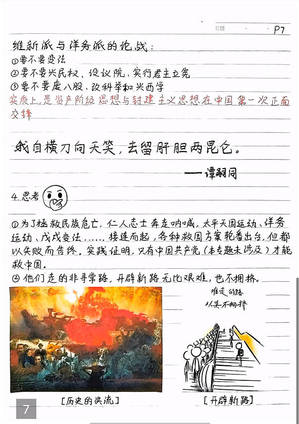 P7
维新派与洋务派的论战：
①要不要变法
②要不要兴民权，设议院，实行君主立宪
③要不要废八股、改科举和兴西学
实质上，是资产阶级思想与封建主义思想在中国第一次正面
交锋
我自横刀向天笑，去留肝胆两昆仑。
——谭嗣同
4.思考
①为了拯救民族危亡，仁人志士奔走呐喊，太平天国运动、洋务
运动、戊戌变法……接连而起，各种救国方案轮番出台，但都
以失败而告终。实践证明，只有中国共产党（本专题未涉及）才能
救中国。
②他们走的非寻常路，开辟新路无比艰难，也不拥挤。
难走的路
从来不拥挤
[历史的洪流]
[开辟新路]
7